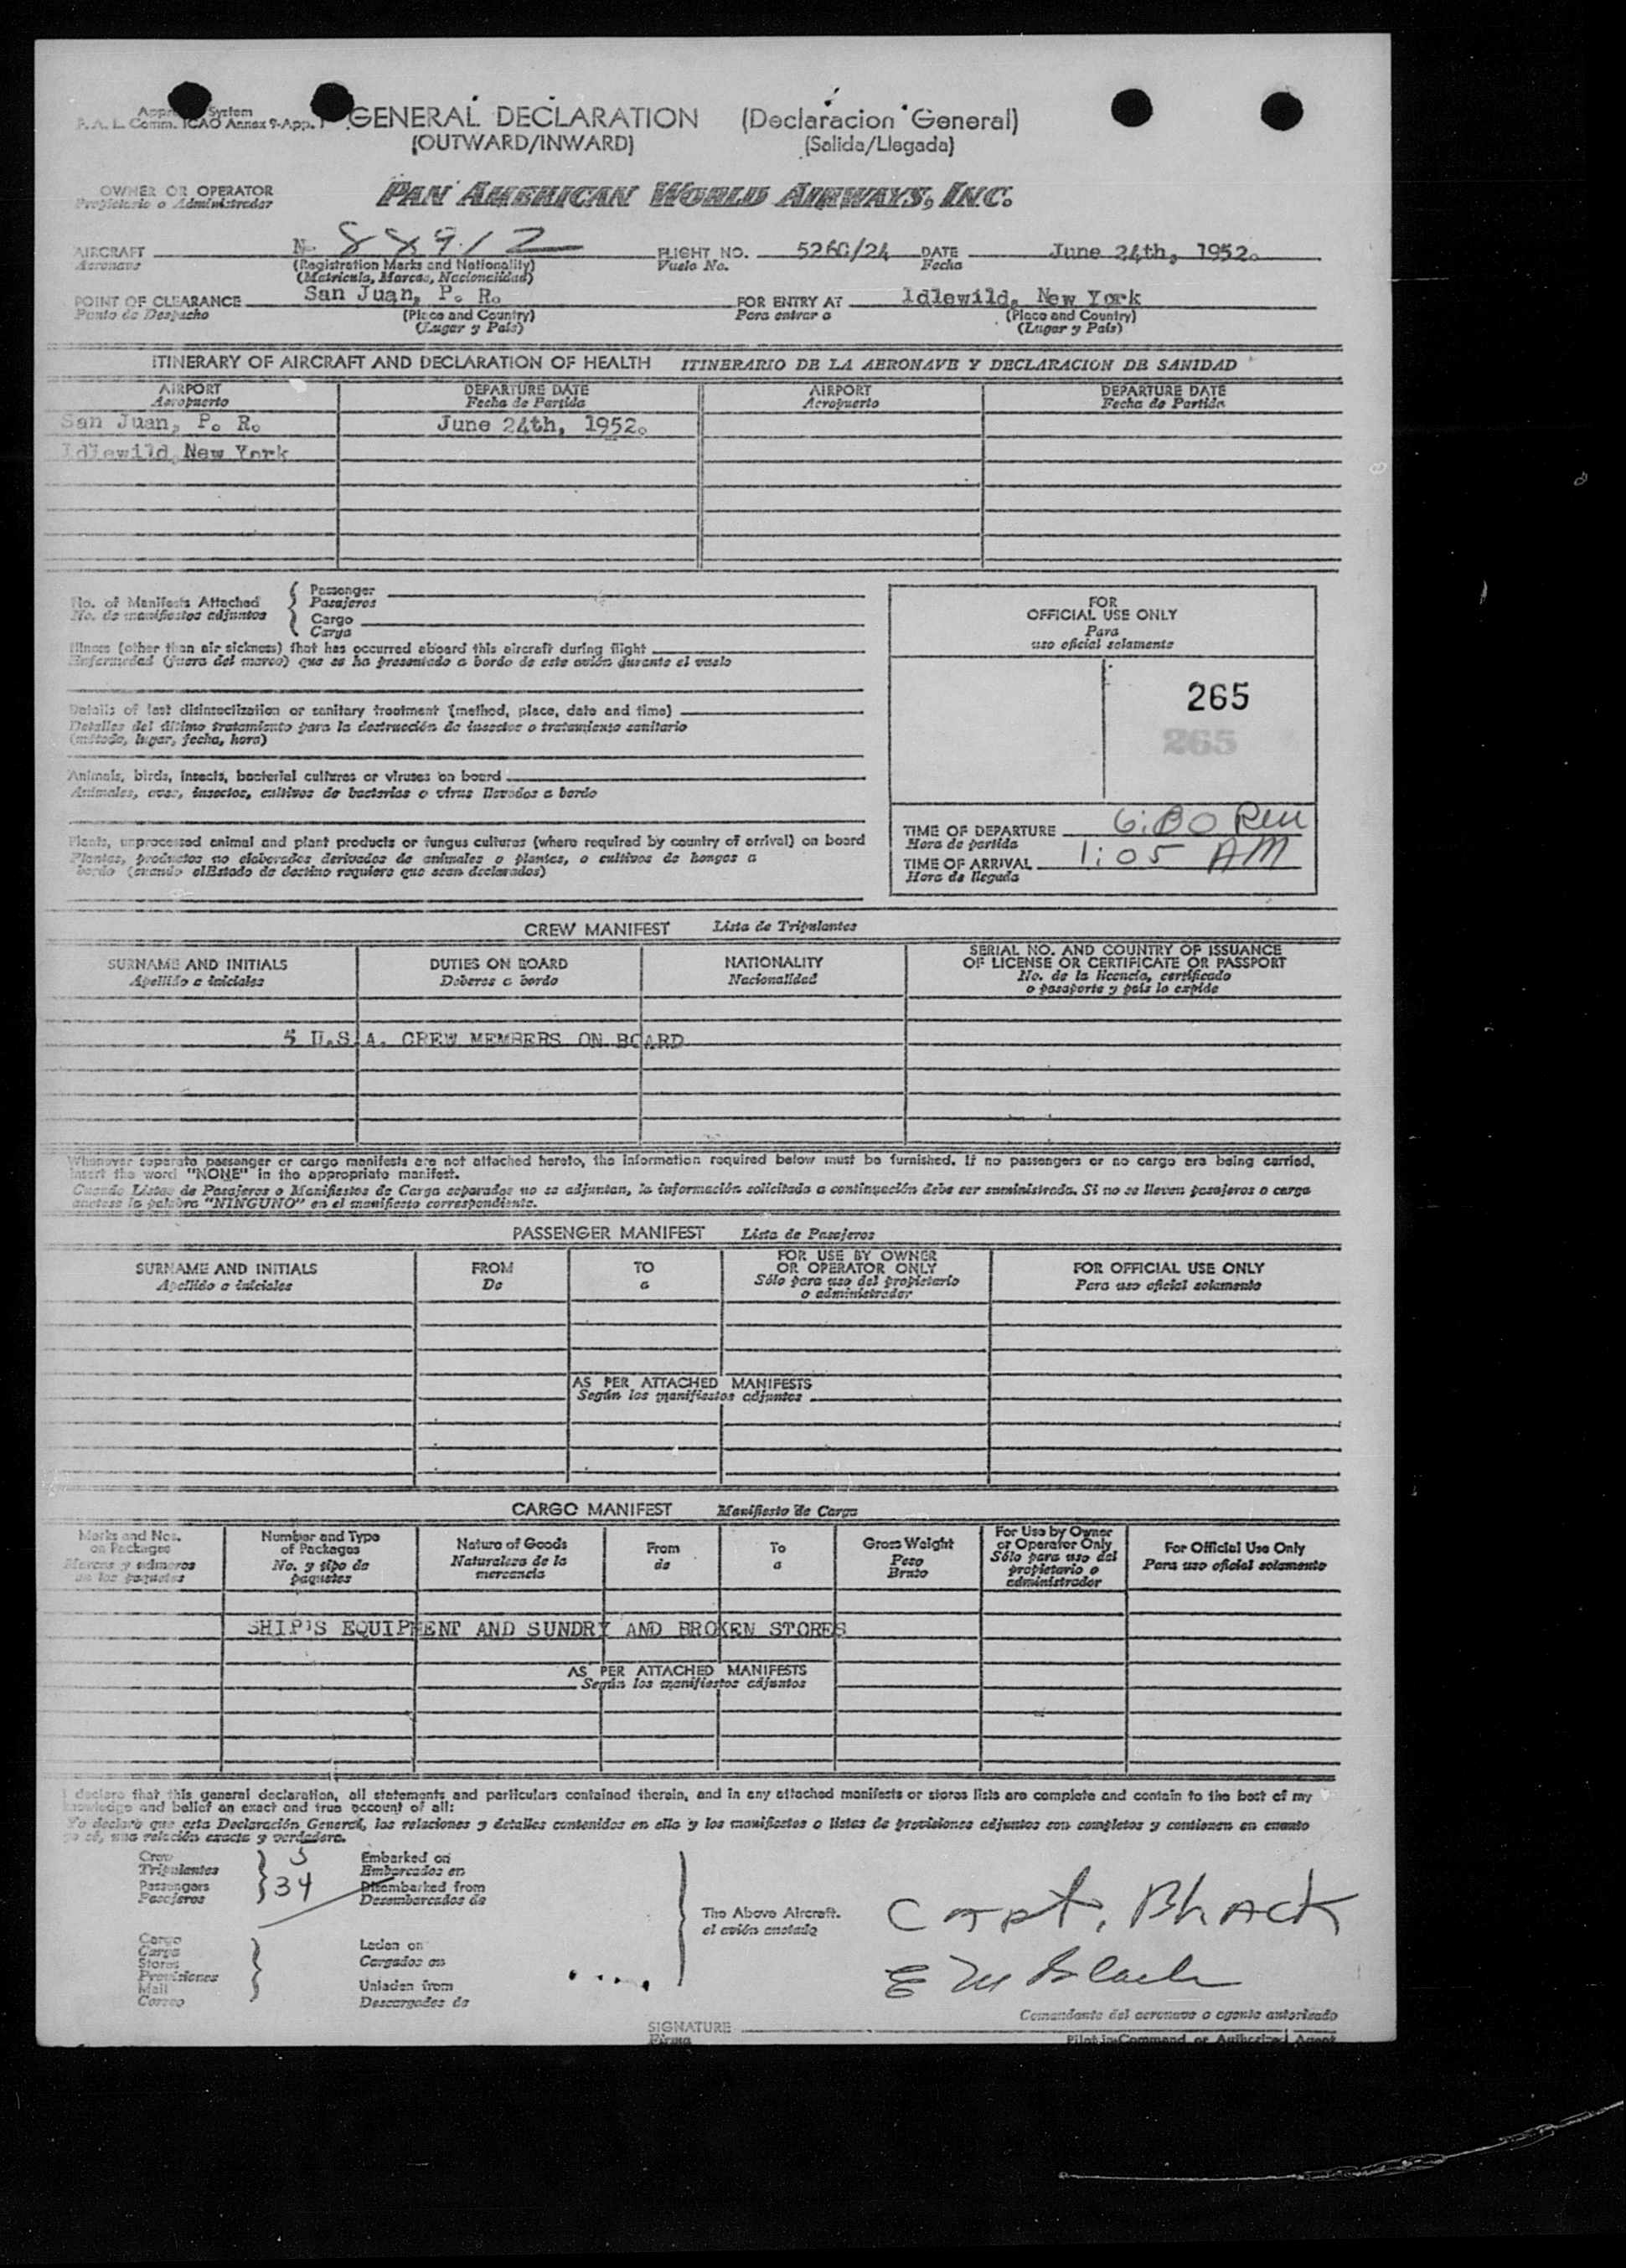 System
P. A. L. Comm. ICAO Annex 9-App. 1
GENERAL DECLARATION (Declaracion General)
(OUTWARD/INWARD) (Salida/Llegada)
OWNER OR OPERATOR
Propietario o Administrador
PAN AMERICAN WORLD AIRWAYS, INC.
AIRCRAFT N- 88912 FLIGHT NO. 526C/24 DATE June 24th, 1952.
Aeronave (Registration Marks and Nationality) Vuelo No. Fecha
(Matricula, Marcas, Nacionalidad)
POINT OF CLEARANCE San Juan, P. R. FOR ENTRY AT Idlewild, New York
Punto de Despacho (Place and Country) Para entrar a (Place and Country)
(Lugar y País) (Lugar y País)
ITINERARY OF AIRCRAFT AND DECLARATION OF HEALTH ITINERARIO DE LA AERONAVE Y DECLARACION DE SANIDAD
AIRPORT DEPARTURE DATE AIRPORT DEPARTURE DATE
Aeropuerto Fecha de Partida Aeropuerto Fecha de Partida
San Juan, P. R. June 24th, 1952.
Idlewild, New York
No. of Manifests Attached
No. de manifiestos adjuntos
Passenger
Pasajeros
Cargo
Carga
Illness (other than air sickness) that has occurred aboard this aircraft during flight
Enfermedad (fuera del mareo) que se ha presentado a bordo de este avión durante el vuelo
Details of last disinsectization or sanitary treatment (method, place, date and time)
Detalles del último tratamiento para la destrucción de insectos o tratamiento sanitario
(método, lugar, fecha, hora)
Animals, birds, insects, bacterial cultures or viruses on board
Animales, aves, insectos, cultivos de bacterias o virus llevados a bordo
Plants, unprocessed animal and plant products or fungus cultures (where required by country of arrival) on board
Plantas, productos no elaborados derivados de animales o plantas, o cultivos de hongos a
bordo (cuando el Estado de destino requiera que sean declarados)
FOR
OFFICIAL USE ONLY
Para
uso oficial solamente
265
265
TIME OF DEPARTURE 6:30 PM
Hora de partida
TIME OF ARRIVAL 1:05 AM
Hora de llegada
CREW MANIFEST Lista de Tripulantes
SURNAME AND INITIALS DUTIES ON BOARD NATIONALITY SERIAL NO. AND COUNTRY OF ISSUANCE
OF LICENSE OR CERTIFICATE OR PASSPORT
Apellido e iniciales Deberes a bordo Nacionalidad No. de la licencia, certificado
o pasaporte y país lo expide
5 U.S.A. CREW MEMBERS ON BOARD
Whenever separate passenger or cargo manifests are not attached hereto, the information required below must be furnished. If no passengers or no cargo are being carried,
insert the word "NONE" in the appropriate manifest.
Cuando Listas de Pasajeros o Manifiestos de Carga separados no se adjuntan, la información solicitada a continuación debe ser suministrada. Si no se lleven pasajeros o carga
anótese la palabra "NINGUNO" en el manifiesto correspondiente.
PASSENGER MANIFEST Lista de Pasajeros
SURNAME AND INITIALS FROM TO FOR USE BY OWNER
OR OPERATOR ONLY FOR OFFICIAL USE ONLY
Apellido e iniciales De a Sólo para uso del propietario
o administrador Para uso oficial solamente
AS PER ATTACHED MANIFESTS
Según los manifiestos adjuntos
CARGO MANIFEST Manifiesto de Carga
Marks and Nos.
on Packages
Marcas y números
en los paquetes
Number and Type
of Packages
No. y tipo de
paquetes
Nature of Goods
Naturaleza de la
mercancía
From
de
To
a
Gross Weight
Peso
Bruto
For Use by Owner
or Operator Only
Sólo para uso del
propietario o
administrador
For Official Use Only
Para uso oficial solamente
SHIP'S EQUIPMENT AND SUNDRY AND BROKEN STORES
AS PER ATTACHED MANIFESTS
Según los manifiestos adjuntos
I declare that this general declaration, all statements and particulars contained therein, and in any attached manifests or stores lists are complete and contain to the best of my
knowledge and belief an exact and true account of all:
Yo declaro que esta Declaración General, las relaciones y detalles contenidos en ella y los manifiestos o listas de provisiones adjuntos son completos y contienen en cuanto
yo sé, una relación exacta y verdadera.
Crew
Tripulantes
5
Passengers
Pasajeros
34
Embarked on
Embarcados en
Disembarked from
Desembarcados de
Cargo
Carga
Stores
Provisiones
Mail
Correo
Laden on
Cargados en
Unladen from
Descargados de
The Above Aircraft.
el avión anotado
Capt. Black
E M Black
Comandante del aeronave o agente autorizado
SIGNATURE
Firma
Pilot in Command or Authorized Agent